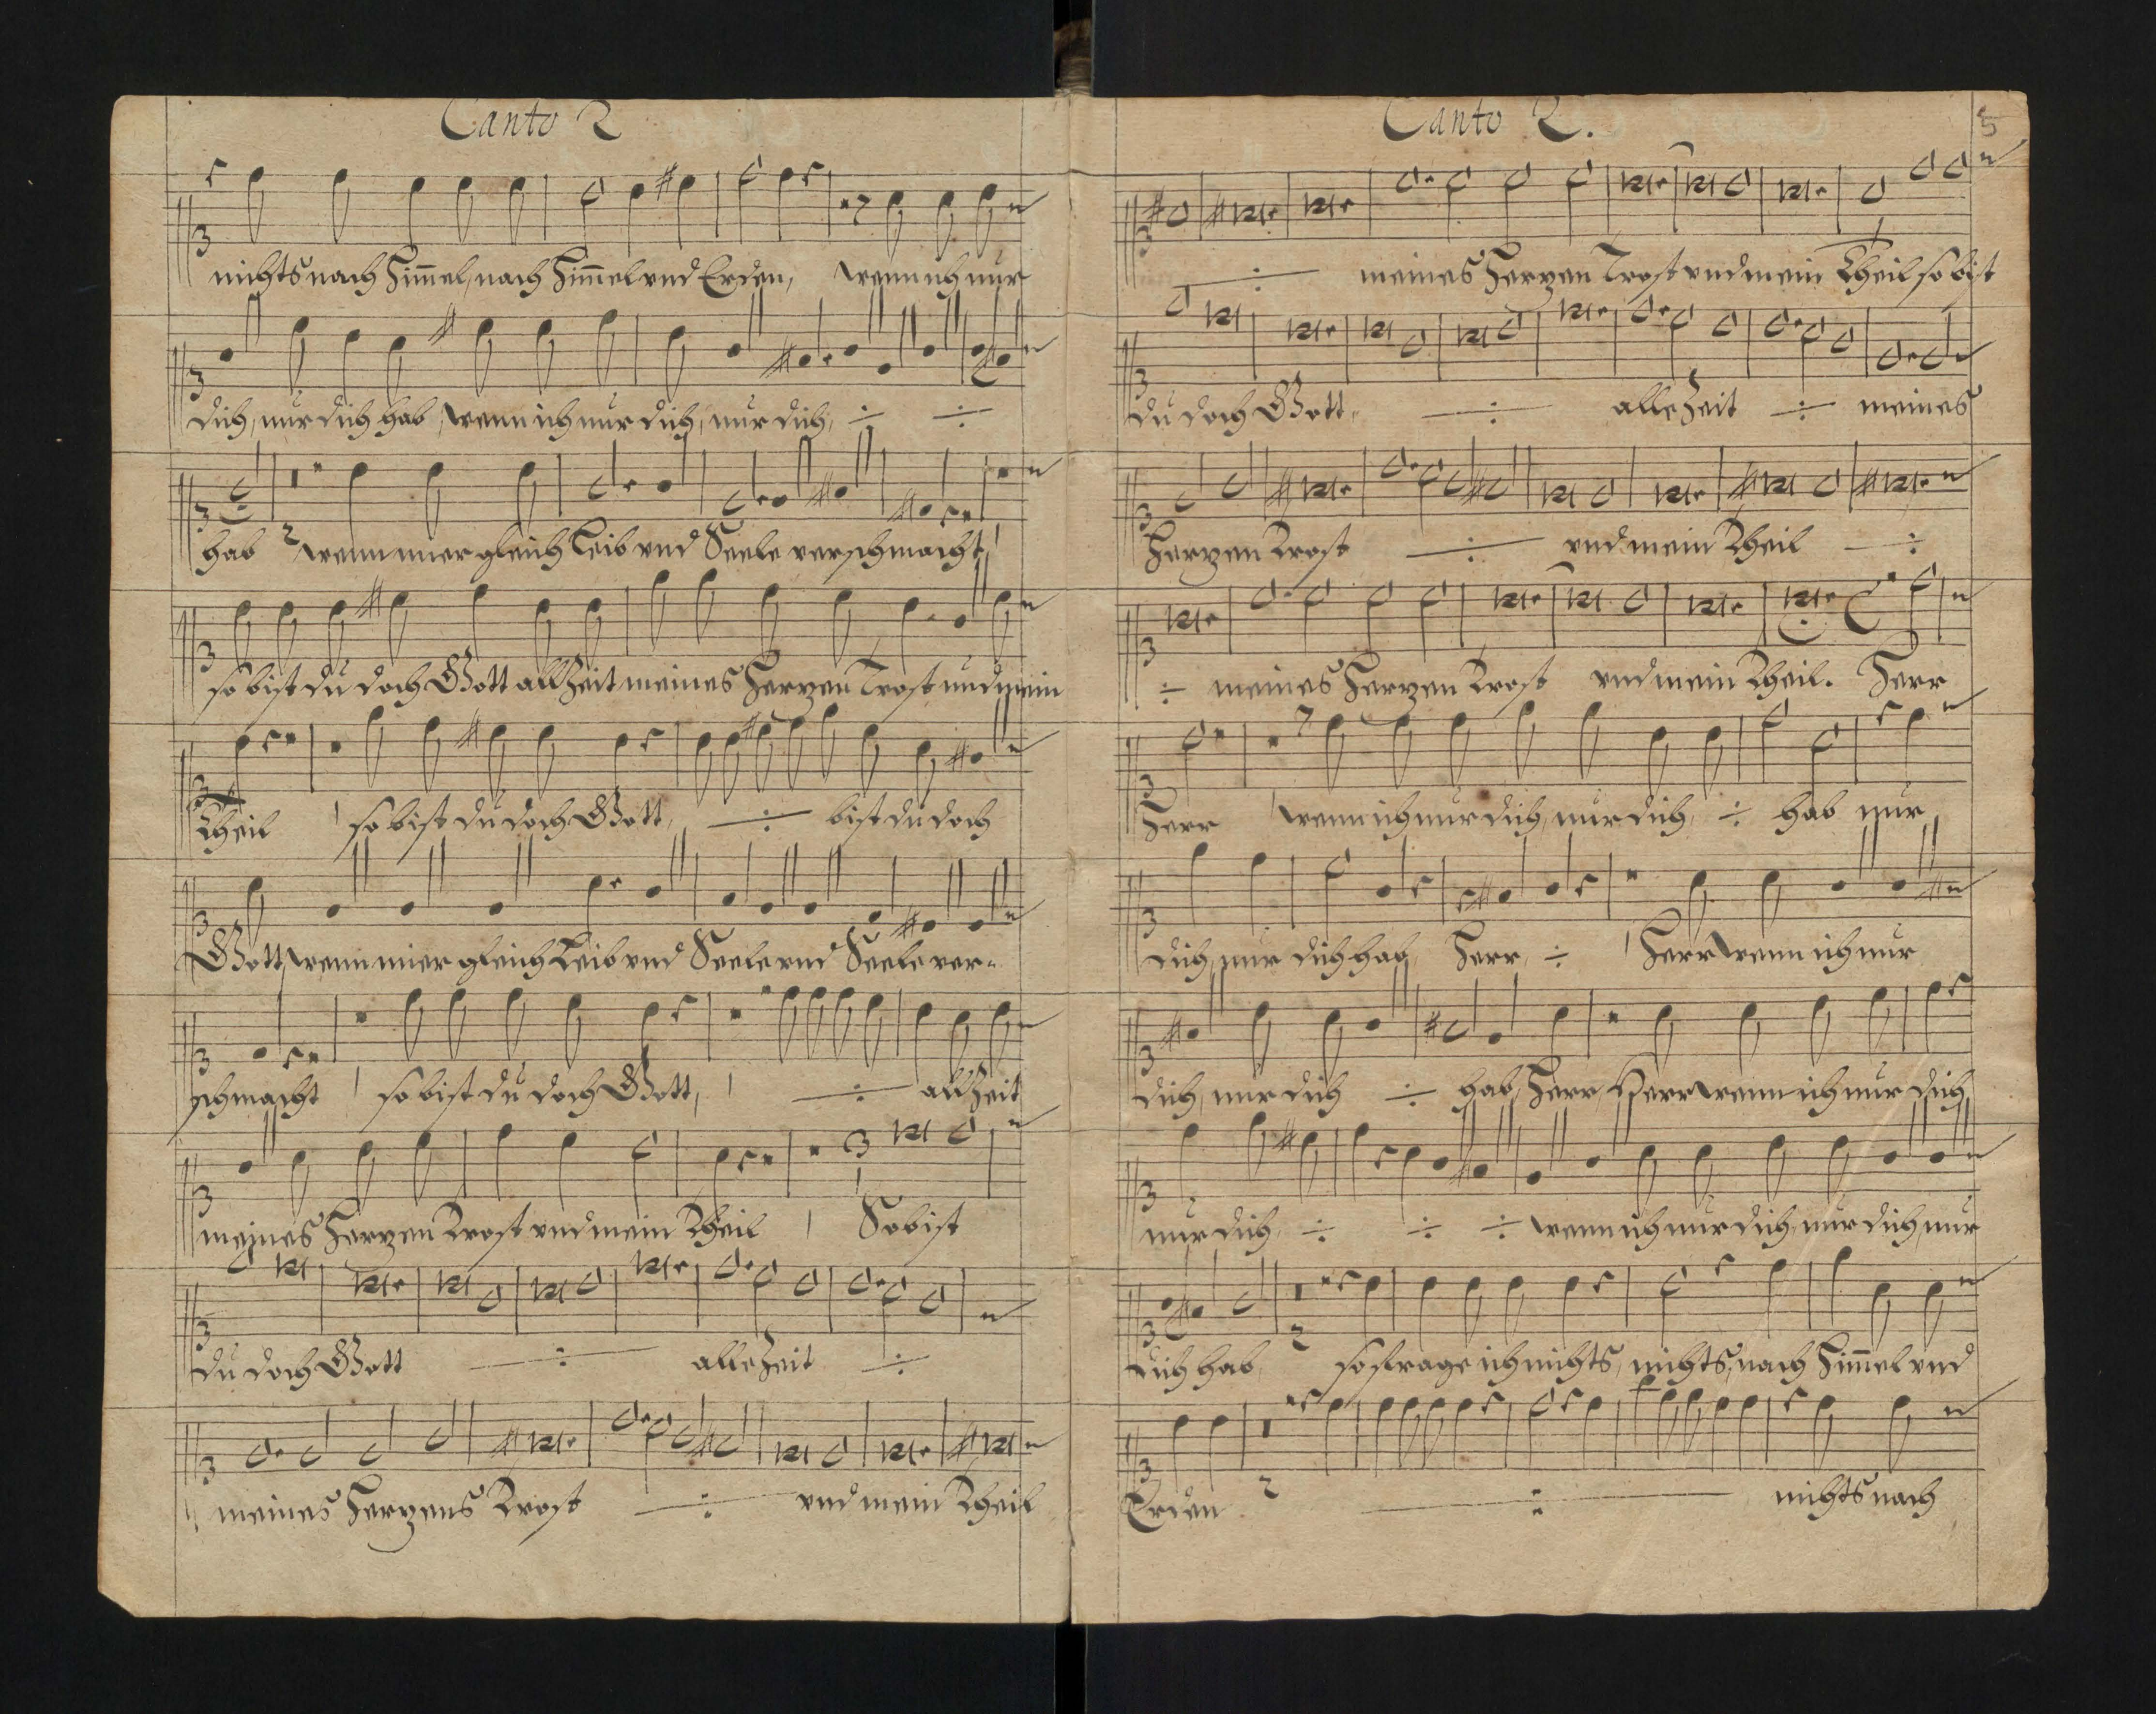 Canto 2
nichts nach Him̅el, nach Him̅el vnd Erden, wenn ich nur
dich, nur dich hab, wenn ich nur dich, nur dich, ÷ ÷
hab 2 wenn mier gleich Leib vnd Seele verschmacht,
so bist du doch Gott allzeit meines Herzen Trost und mein
Theil so bist du doch Gott, ÷ bist du doch
Gott, wenn mier gleich Leib vnd Seele vnd Seele ver-
schmacht so bist du doch Gott, ÷ allzeit
meines Herzen Trost vnd mein Theil So bist
du doch Gott ÷ allezeit ÷
meines Herzens Trost ÷ vnd mein Theil
Canto 2.
5
÷ meines Herzen Trost vnd mein Theil so bist
du doch Gott, ÷ allezeit ÷ meines
Herzen Trost ÷ vnd mein Theil ÷
÷ meines Herzen Trost vnd mein Theil. Herr
Herr wenn ich nur dich, nur dich, ÷ hab nur
dich, nur dich hab, Herr, ÷ Herr wenn ich nur
dich, nur dich ÷ hab, Herr, Herr wenn ich nur dich,
nur dich, ÷ ÷ ÷ wenn ich nur dich, nur dich, nur
dich hab, 2 so frage ich nichts, nichts, nach Him̅el vnd
Erden 2 ÷ nichts nach